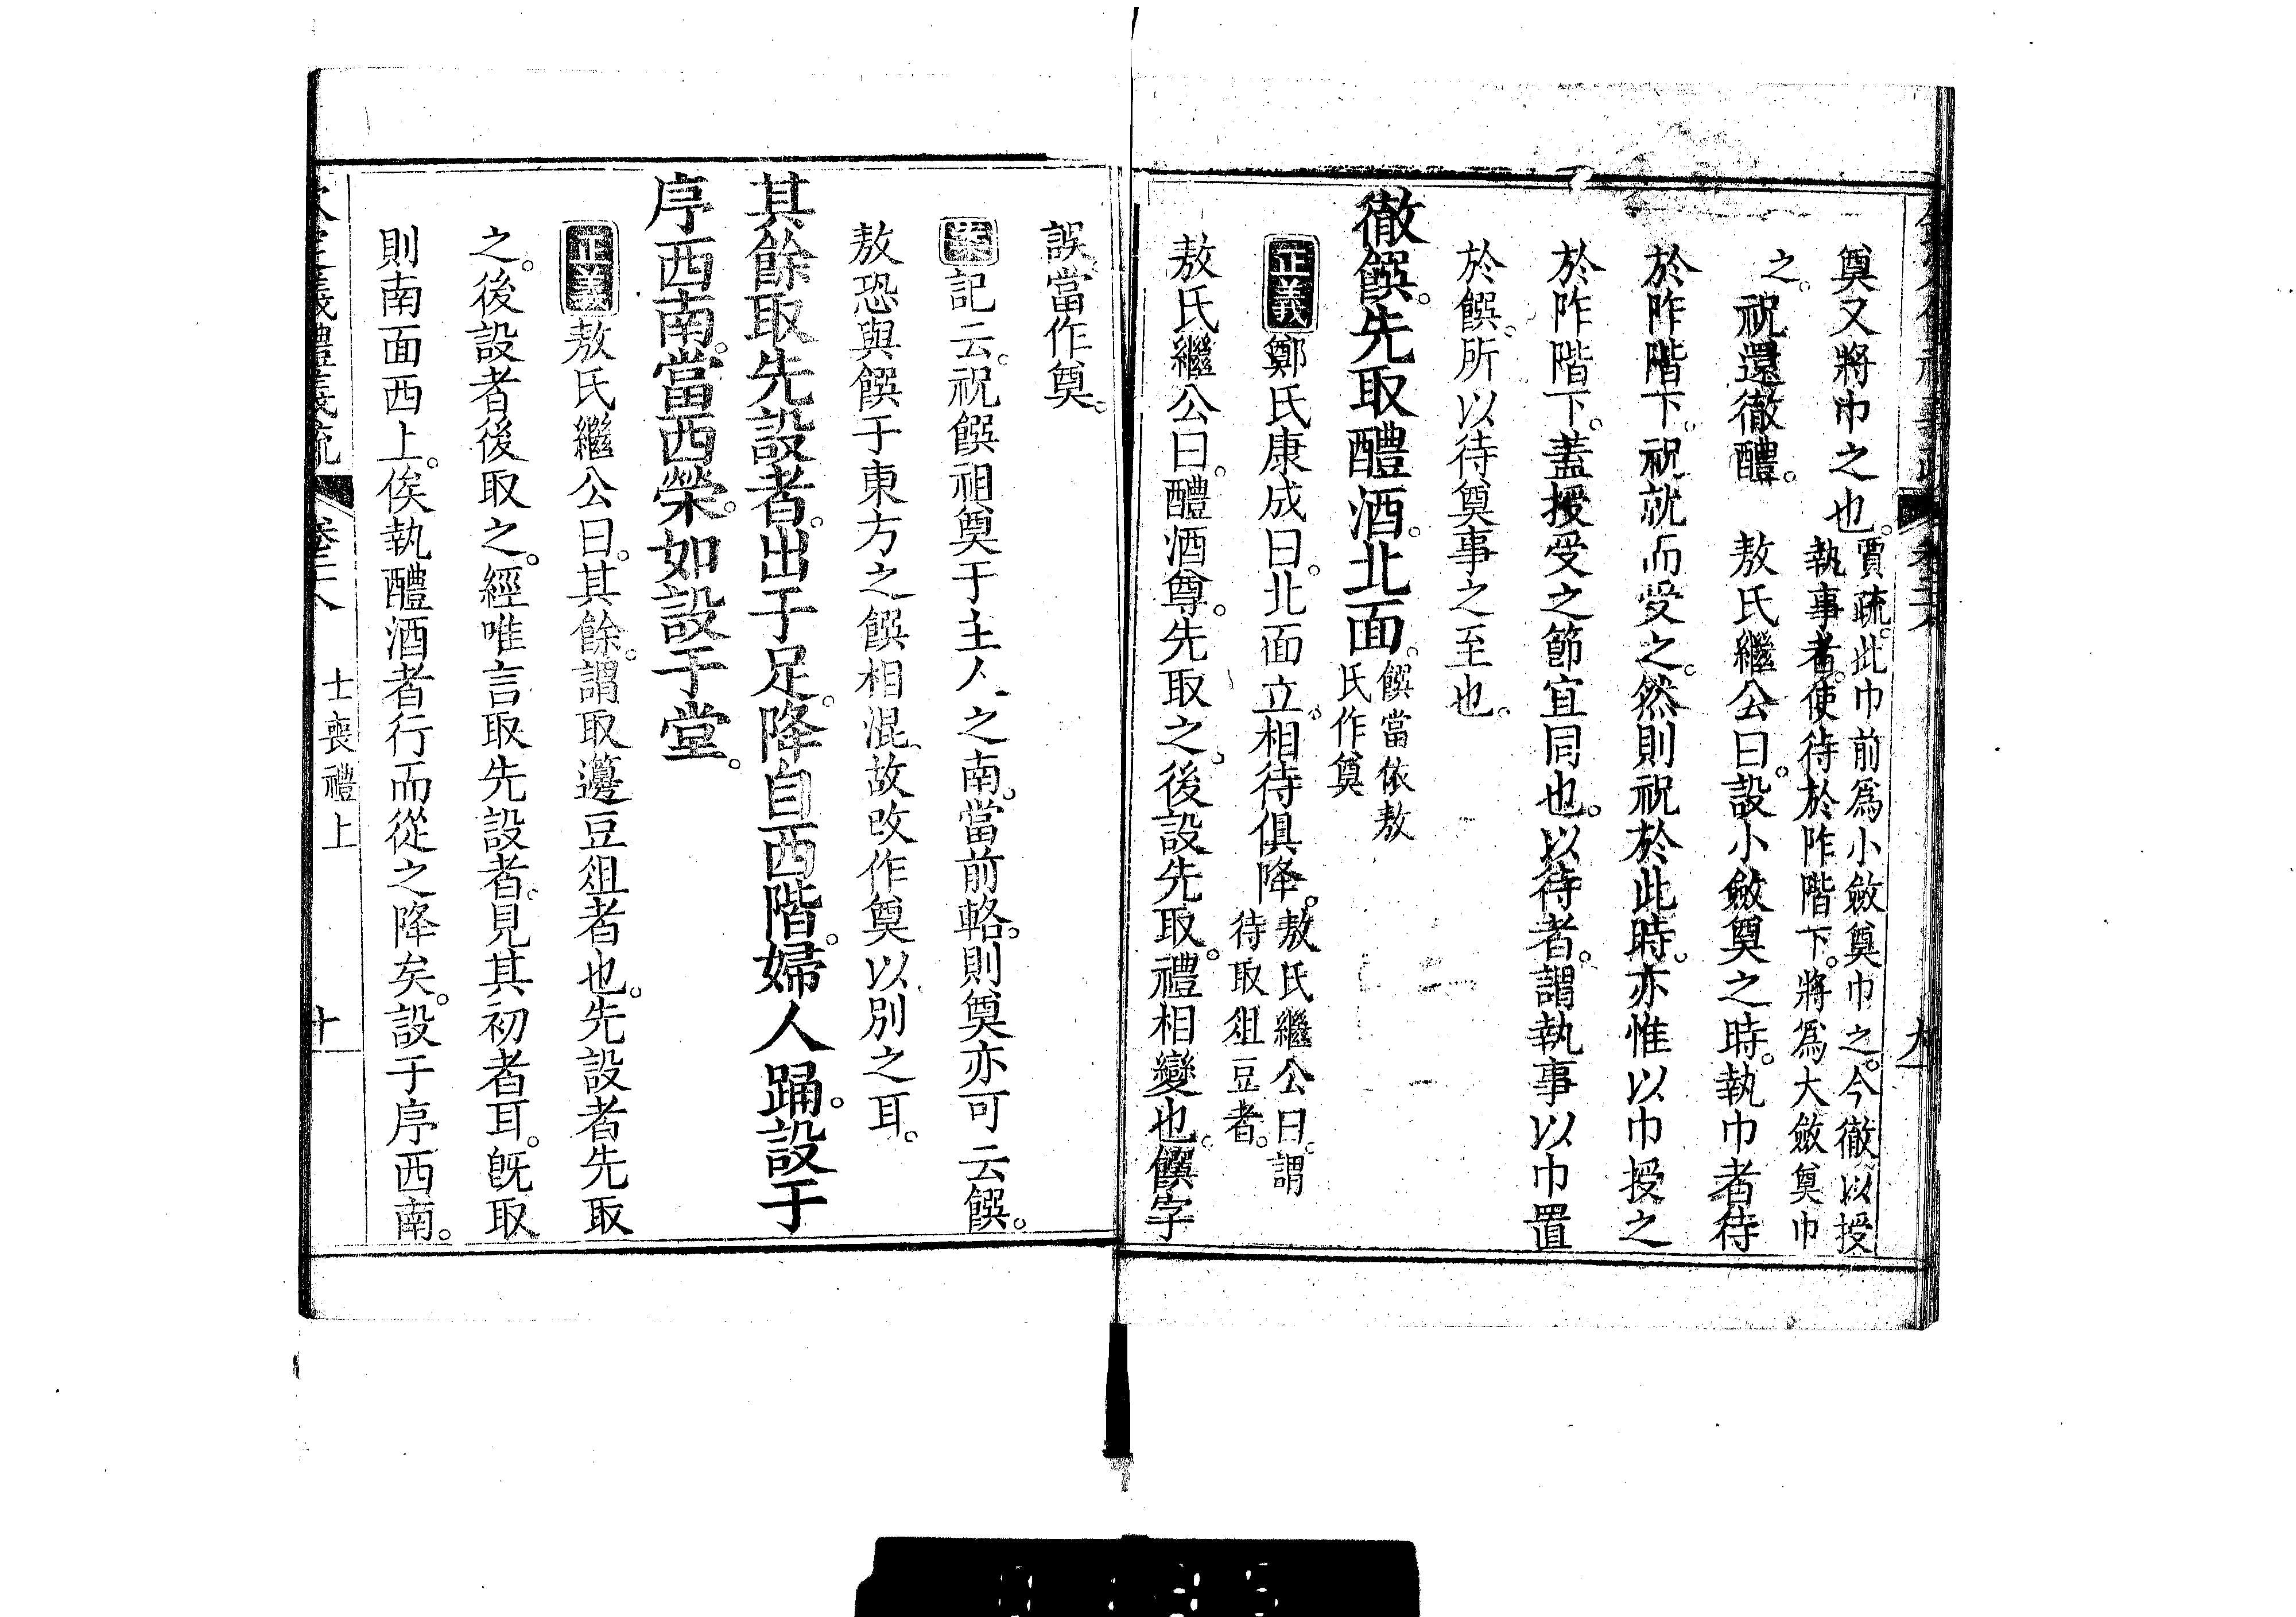 奠又將巾之也。賈疏。此巾前爲小斂奠巾之。今徹以授
執事者。使待於阼階下。將爲大斂奠巾
之。祝還徹醴。　敖氏繼公曰。設小斂奠之時。執巾者待
於阼階下。祝就而受之。然則祝於此時。亦惟以巾授之
於阼階下。蓋授受之節宜同也。以待者。謂執事以巾置
於饌。所以待奠事之至也。
徹饌。先取醴酒。北面。饌當依敖
氏作奠
正義鄭氏康成曰。北面立。相待俱降。敖氏繼公曰。謂
待取俎豆者。
敖氏繼公曰。醴酒尊。先取之。後設先取。禮相變也。饌字
誤。當作奠。
案記云。祝饌祖奠于主人之南。當前輅。則奠亦可云饌。
敖恐與饌于東方之饌相混。故改作奠以別之耳。
其餘取先設者。出于足。降自西階。婦人踊。設于
序西南。當西榮。如設于堂。
正義敖氏繼公曰。其餘。謂取籩豆俎者也。先設者先取
之。後設者後取之。經唯言取先設者。見其初者耳。旣取
則南面西上。俟執醴酒者行而從之降矣。設于序西南。
士喪禮上
十